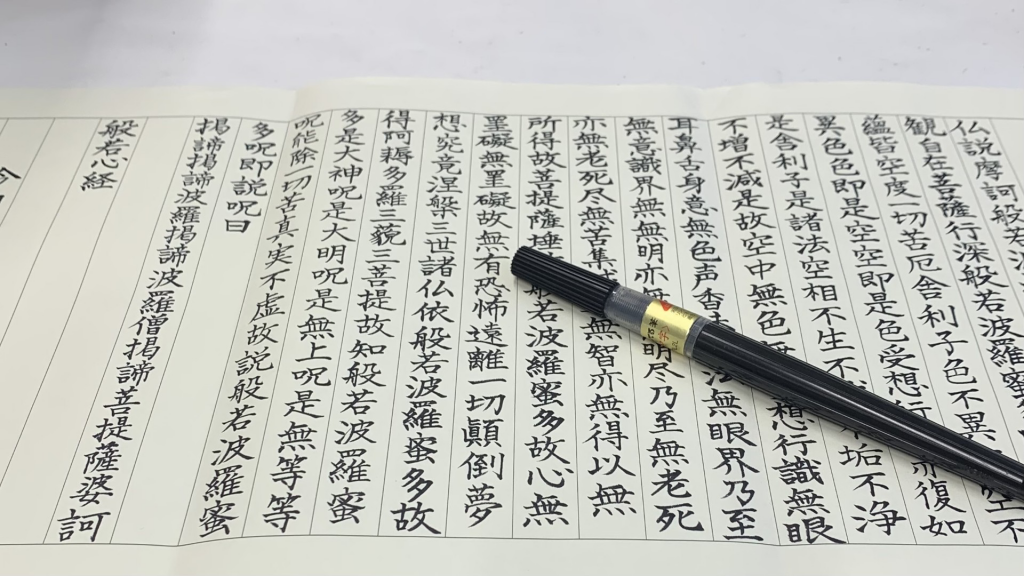 仏説摩訶般若
観自在菩薩行深般若波羅蜜
蘊皆空度一切苦厄舎利子色不異空不
異色色即是空空即是色受想行亦復如
是舎利子是諸法空相不生不不垢不浄
不増不減是故空中無色無想行識無眼
耳鼻舌身意無色声香法無眼界乃至
無意識界無無明亦無明尽乃至無老死
亦無老死尽無苦集無智亦無得以無
所得故菩提薩埵般若波羅蜜多故心無
罣礙無罣礙故無有恐怖遠離一切顛倒夢
想究竟涅槃三世諸仏依般若波羅蜜多故
得阿耨多羅三藐三菩提故知般若波羅蜜
多是大神呪是大明呪是無上呪是無等等
呪能除一切苦真実不虚故説般若波羅蜜
多呪即説呪曰
掲諦掲諦波羅掲諦波羅僧掲諦菩提薩婆訶
般若心経